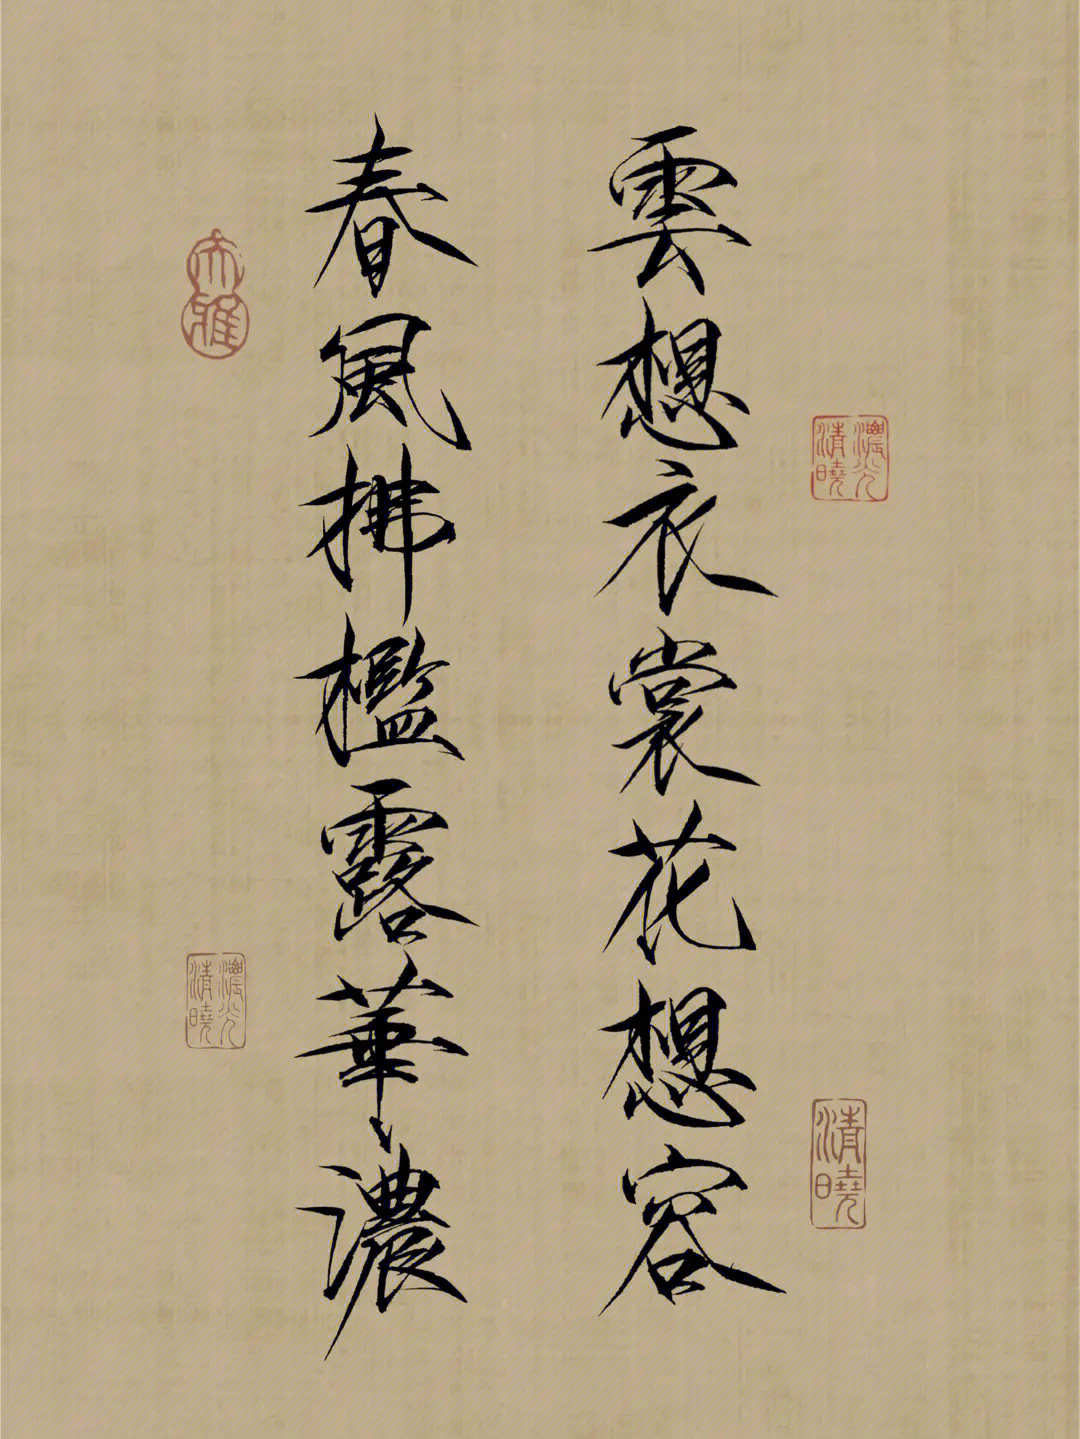 雲想衣裳花想容
春風拂檻露華濃
濃光清曉
清曉
大雅
濃光清曉